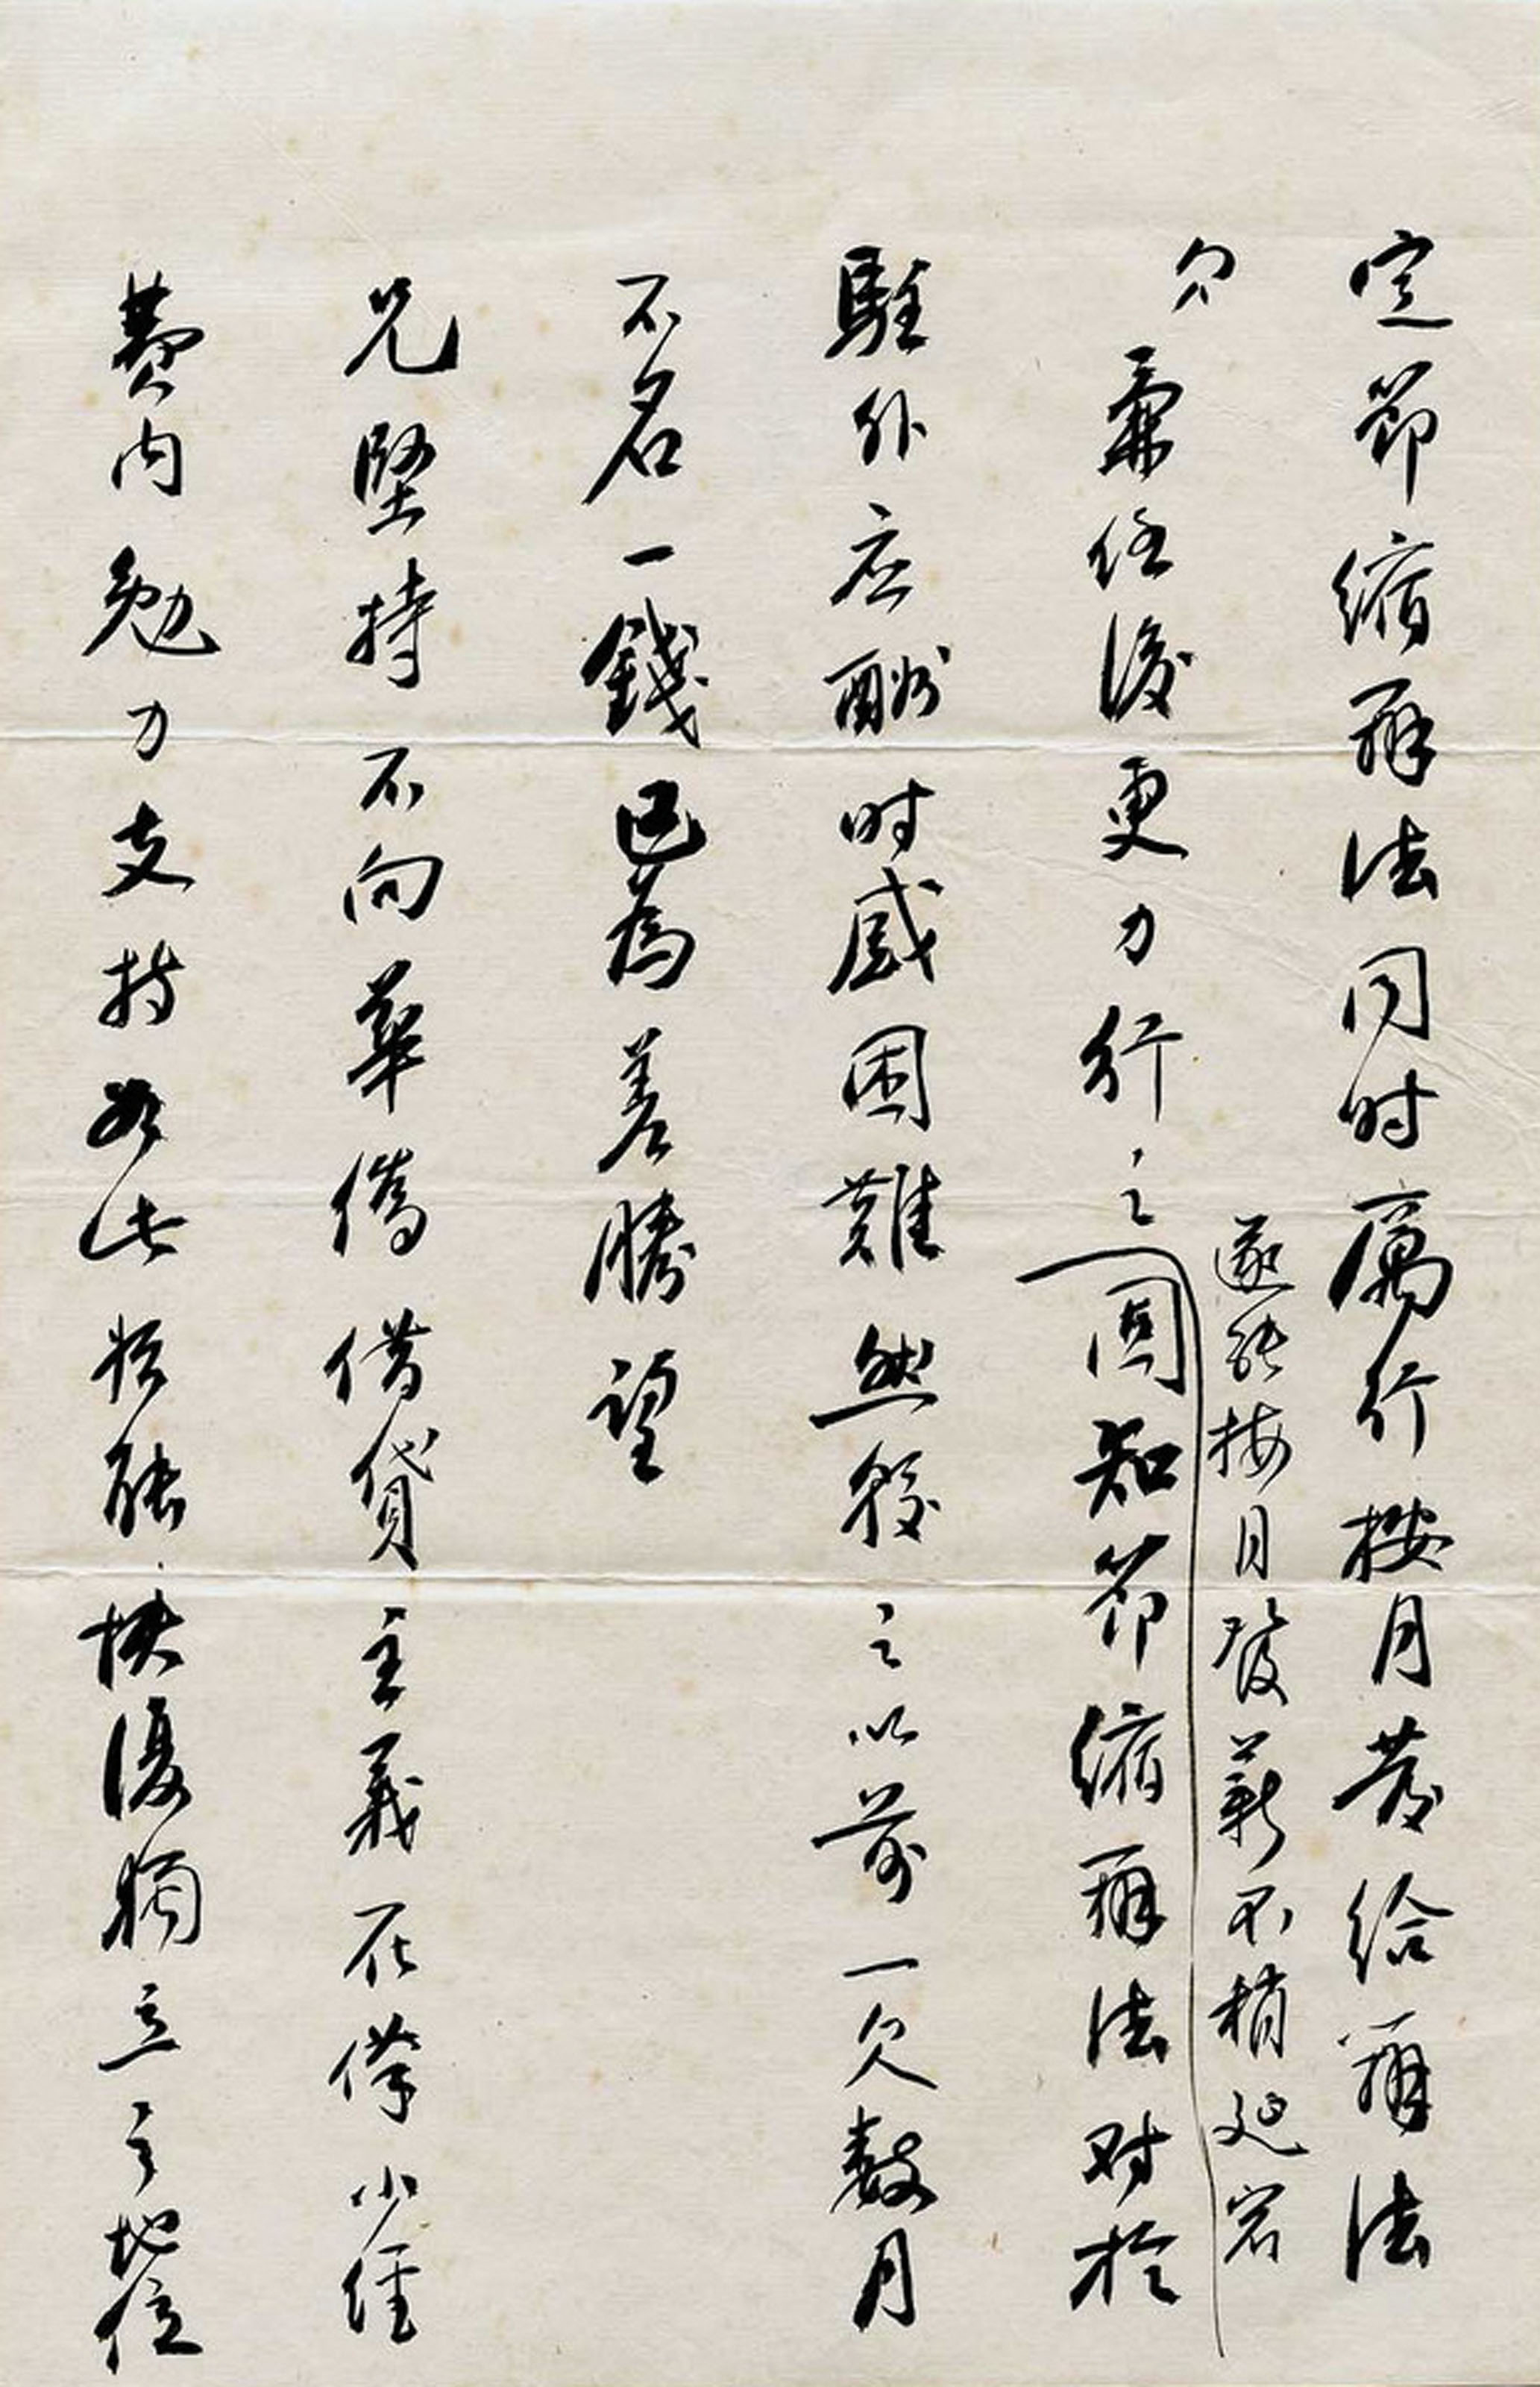 定節縮辦法同時厲行按月發給辦法
遂能按月發薪不稍延宕
欠兼任後更力行之固知節縮辦法对於
駐外应酬时感困難然較之以前一欠數月
不名一錢已為差勝望
兄堅持不向華僑借貸主義在僅少經
費内勉力支持如此始能恢復獨立之地位